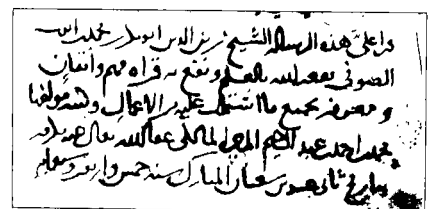 قرا على هذه الرسالة الشيخ زين الدين ابو بكر محمد بن
الصوفي نفعه الله بالعلم ونفع به قراة فهم واتقان
ومعرفة بجميع ما اشتملت عليه من الاعمال وكتبه مولفها
محمد بن احمد بن عبد الرحيم المزي المالكي عفا الله تعالى عنه
بتاريخ ثاني عشر شعبان المبارك سنة خمس واربعين وسبعمائة